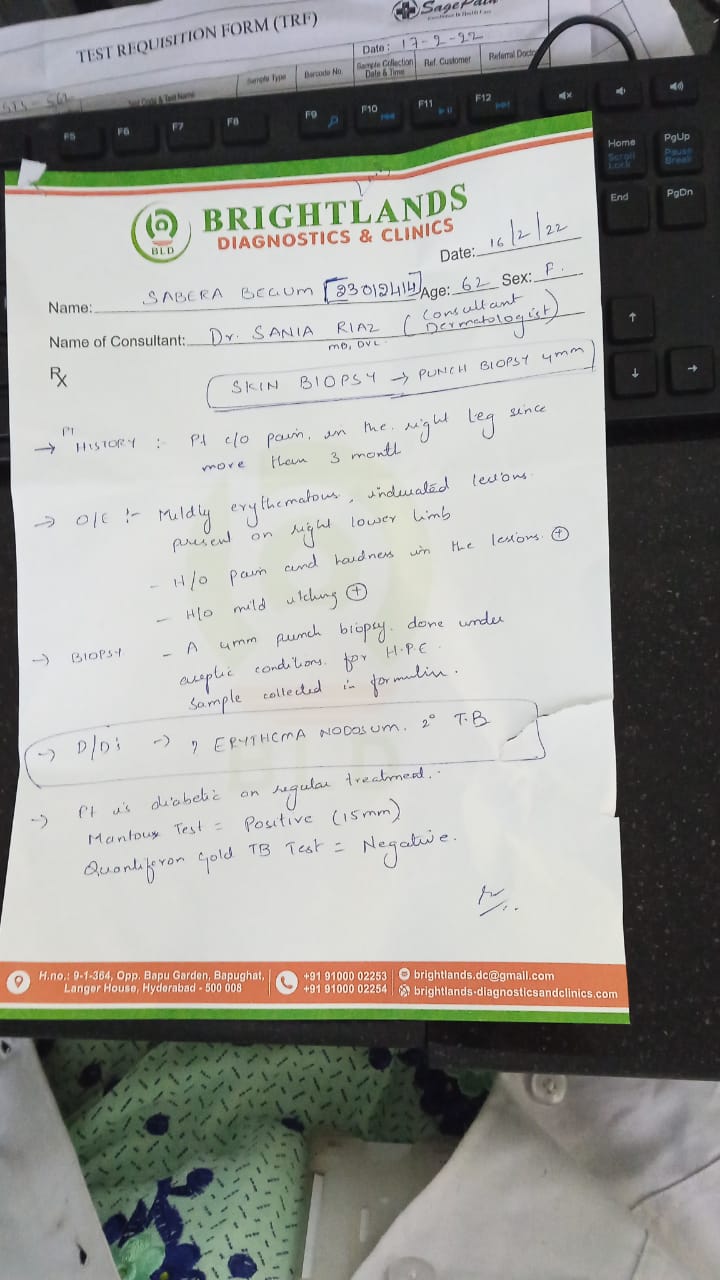 SagePath
TEST REQUISITION FORM (TRF)
Date: 17-2-22
Sample Type Barcode No. Sample Collection Date & Time Ref. Customer Referral Doctor
Test Code & Test Name
F5 F6 F7 F8 F9 F10 F11 F12
Home PgUp
Scroll Lock Pause Break
End PgDn
BRIGHTLANDS
DIAGNOSTICS & CLINICS
BLD
Date: 16/2/22
Name: SABERA BEGUM [23012414] Age: 62 Sex: F.
Name of Consultant: Dr. SANIA RIAZ (Consultant Dermatologist)
MD, DVL
Rx
SKIN BIOPSY → PUNCH BIOPSY 4mm
→ PT HISTORY :- Pt c/o pain, in the right leg since
more than 3 month
→ O/E :- Mildly erythematous, indurated lesions
present on right lower limb
- H/o pain and hardness in the lesions. ⊕
- H/o mild itching ⊕
→ BIOPSY - A 4mm punch biopsy. done under
aseptic conditions. for H.P.E.
Sample collected in formalin.
→ D/D: → ? ERYTHEMA NODOSUM. 2° T.B
→ Pt is diabetic on regular treatment..
Mantoux Test = Positive (15mm)
Quantiferon gold TB Test = Negative.
H.no.: 9-1-364, Opp. Bapu Garden, Bapughat,
Langer House, Hyderabad - 500 008
+91 91000 02253
+91 91000 02254
brightlands.dc@gmail.com
brightlands-diagnosticsandclinics.com